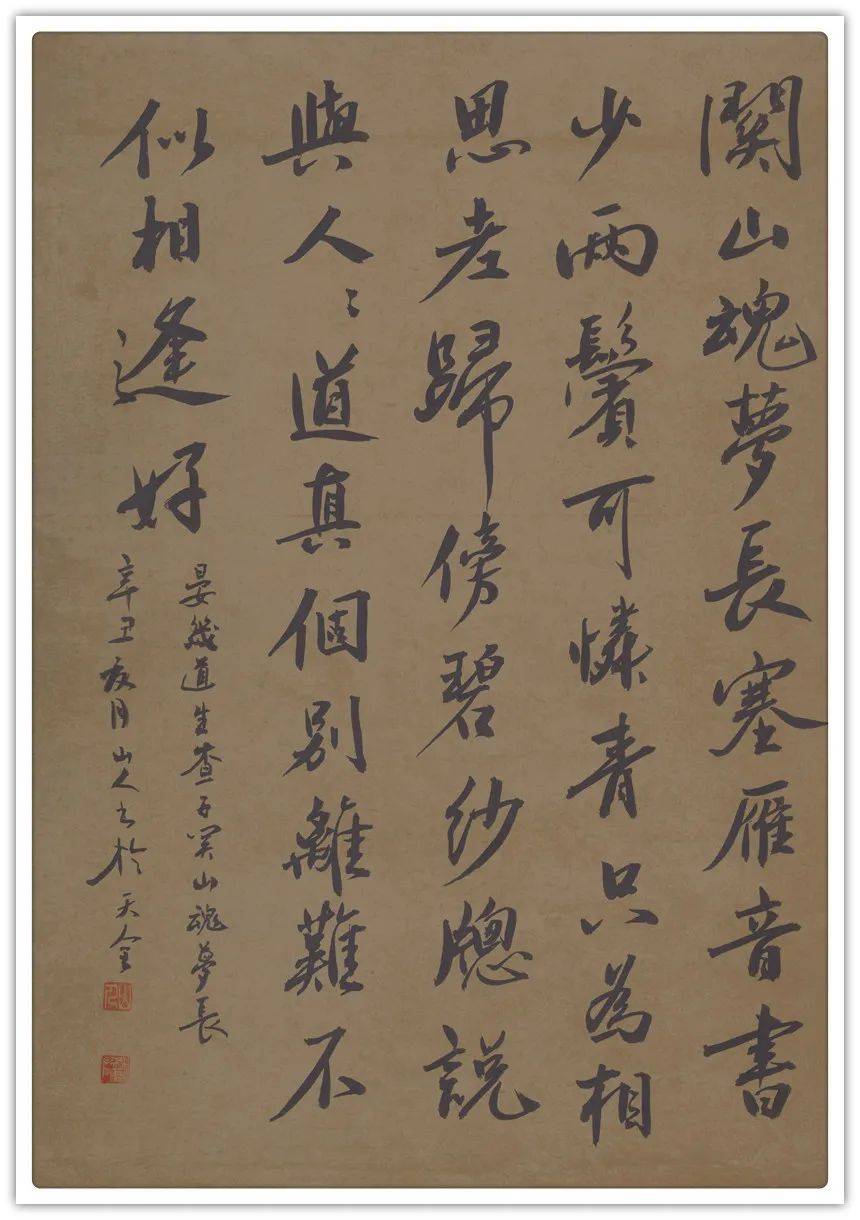 關山魂夢長塞雁音書
少兩鬢可憐青只為相
思老歸傍碧紗牕説
與人〻道真個別離難不
似相逢好
晏幾道生查子関山魂夢長
辛丑夏月山人書於天全